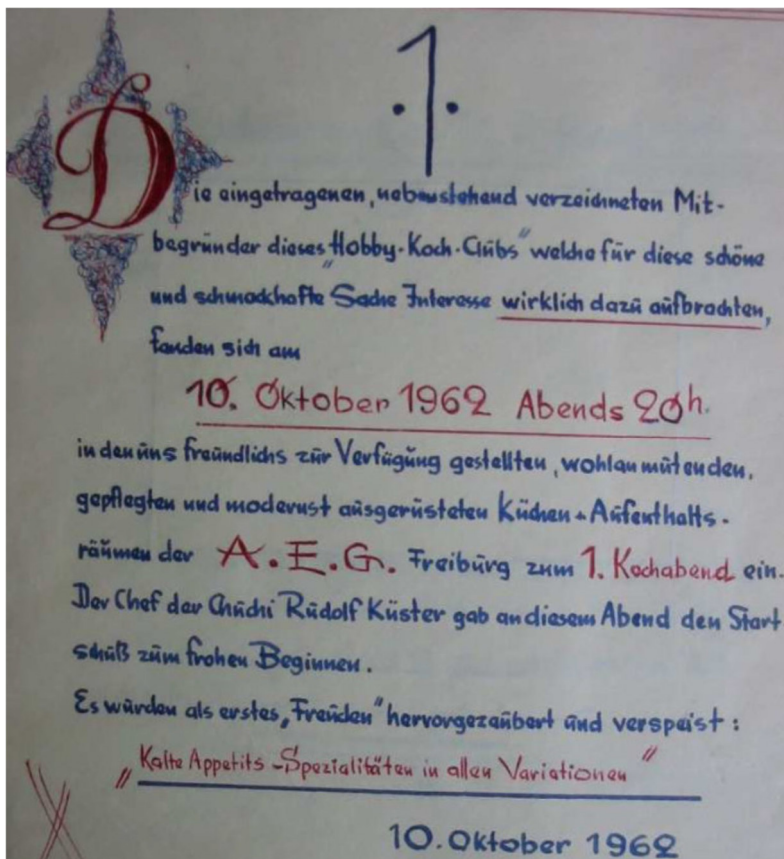 ·1·
Die eingetragenen, nebenstehend verzeichneten Mit-
begründer dieses "Hobby-Koch-Clubs" welche für diese schöne
und schmackhafte Sache Interesse wirklich dazu aufbrachten,
fanden sich am
10. Oktober 1962 Abends 20h.
in den uns freundlichs zur Verfügung gestellten, wohlanmutenden,
gepflegten und modernst ausgerüsteten Küchen- Aufenthalts-
räumen der A.E.G. Freiburg zum 1. Kochabend ein.
Der Chef der Chuchi Rudolf Kuster gab an diesem Abend den Start
schuß zum frohen Beginnen.
Es wurden als erstes „Freuden" hervorgezaubert und verspeist:
„Kalte Appetits-Spezialitäten in allen Variationen"
10. Oktober 1962